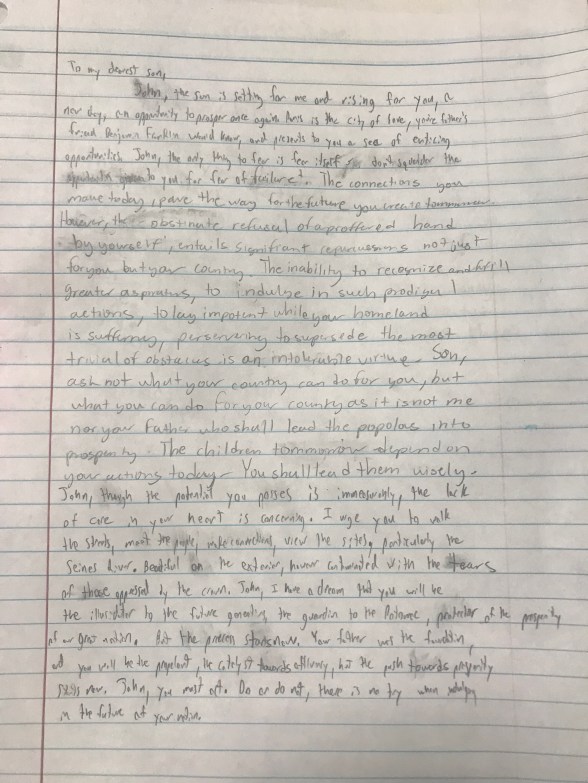 To my dearest son,
John, the sun is setting for me and rising for you, a
new day, an opportunity to prosper once again. Paris is the city of love, your father's
friend Benjamin Franklin would know, and presents to you a sea of enticing
opportunities. John, the only thing to fear is fear itself so don't squander the
given to you for fear of failure. The connections you
make today, pave the way for the future you create tommorrow.
However, the obstinate refusal of a proffered hand
by yourself, entails significant repurcussions not just
for you but your country. The inability to recognize and fulfill
greater aspirations, to indulge in such prodigal
actions, to lay impotent while your homeland
is suffering, perservering to supersede the most
trivial of obstacles is an intolerable virtue. Son,
ask not what your country can do for you, but
what you can do for your country as it is not me
nor your father who shall lead the popolas into
prosperity. The children tommorrow depend on
your actions today. You shall lead them wisely.
John, though the potential you posses is immeasurably, the lack
of care in your heart is concerning. I urge you to walk
the streets, meet the people, make connections, view the sites, particularly the
Seines River. Beautiful on the exterior, however with the tears
of those oppressed by the crown. John, I have a dream that you will be
the to the future generations, the guardian to the Potomac, protector of the prosperity
of our great nation. But the process starts now. Your father was the
and you will be the propellant, the catalyst towards but the push towards prosperity
starts now. John, you must act. Do or do not, there is no try when
in the future of your nation.